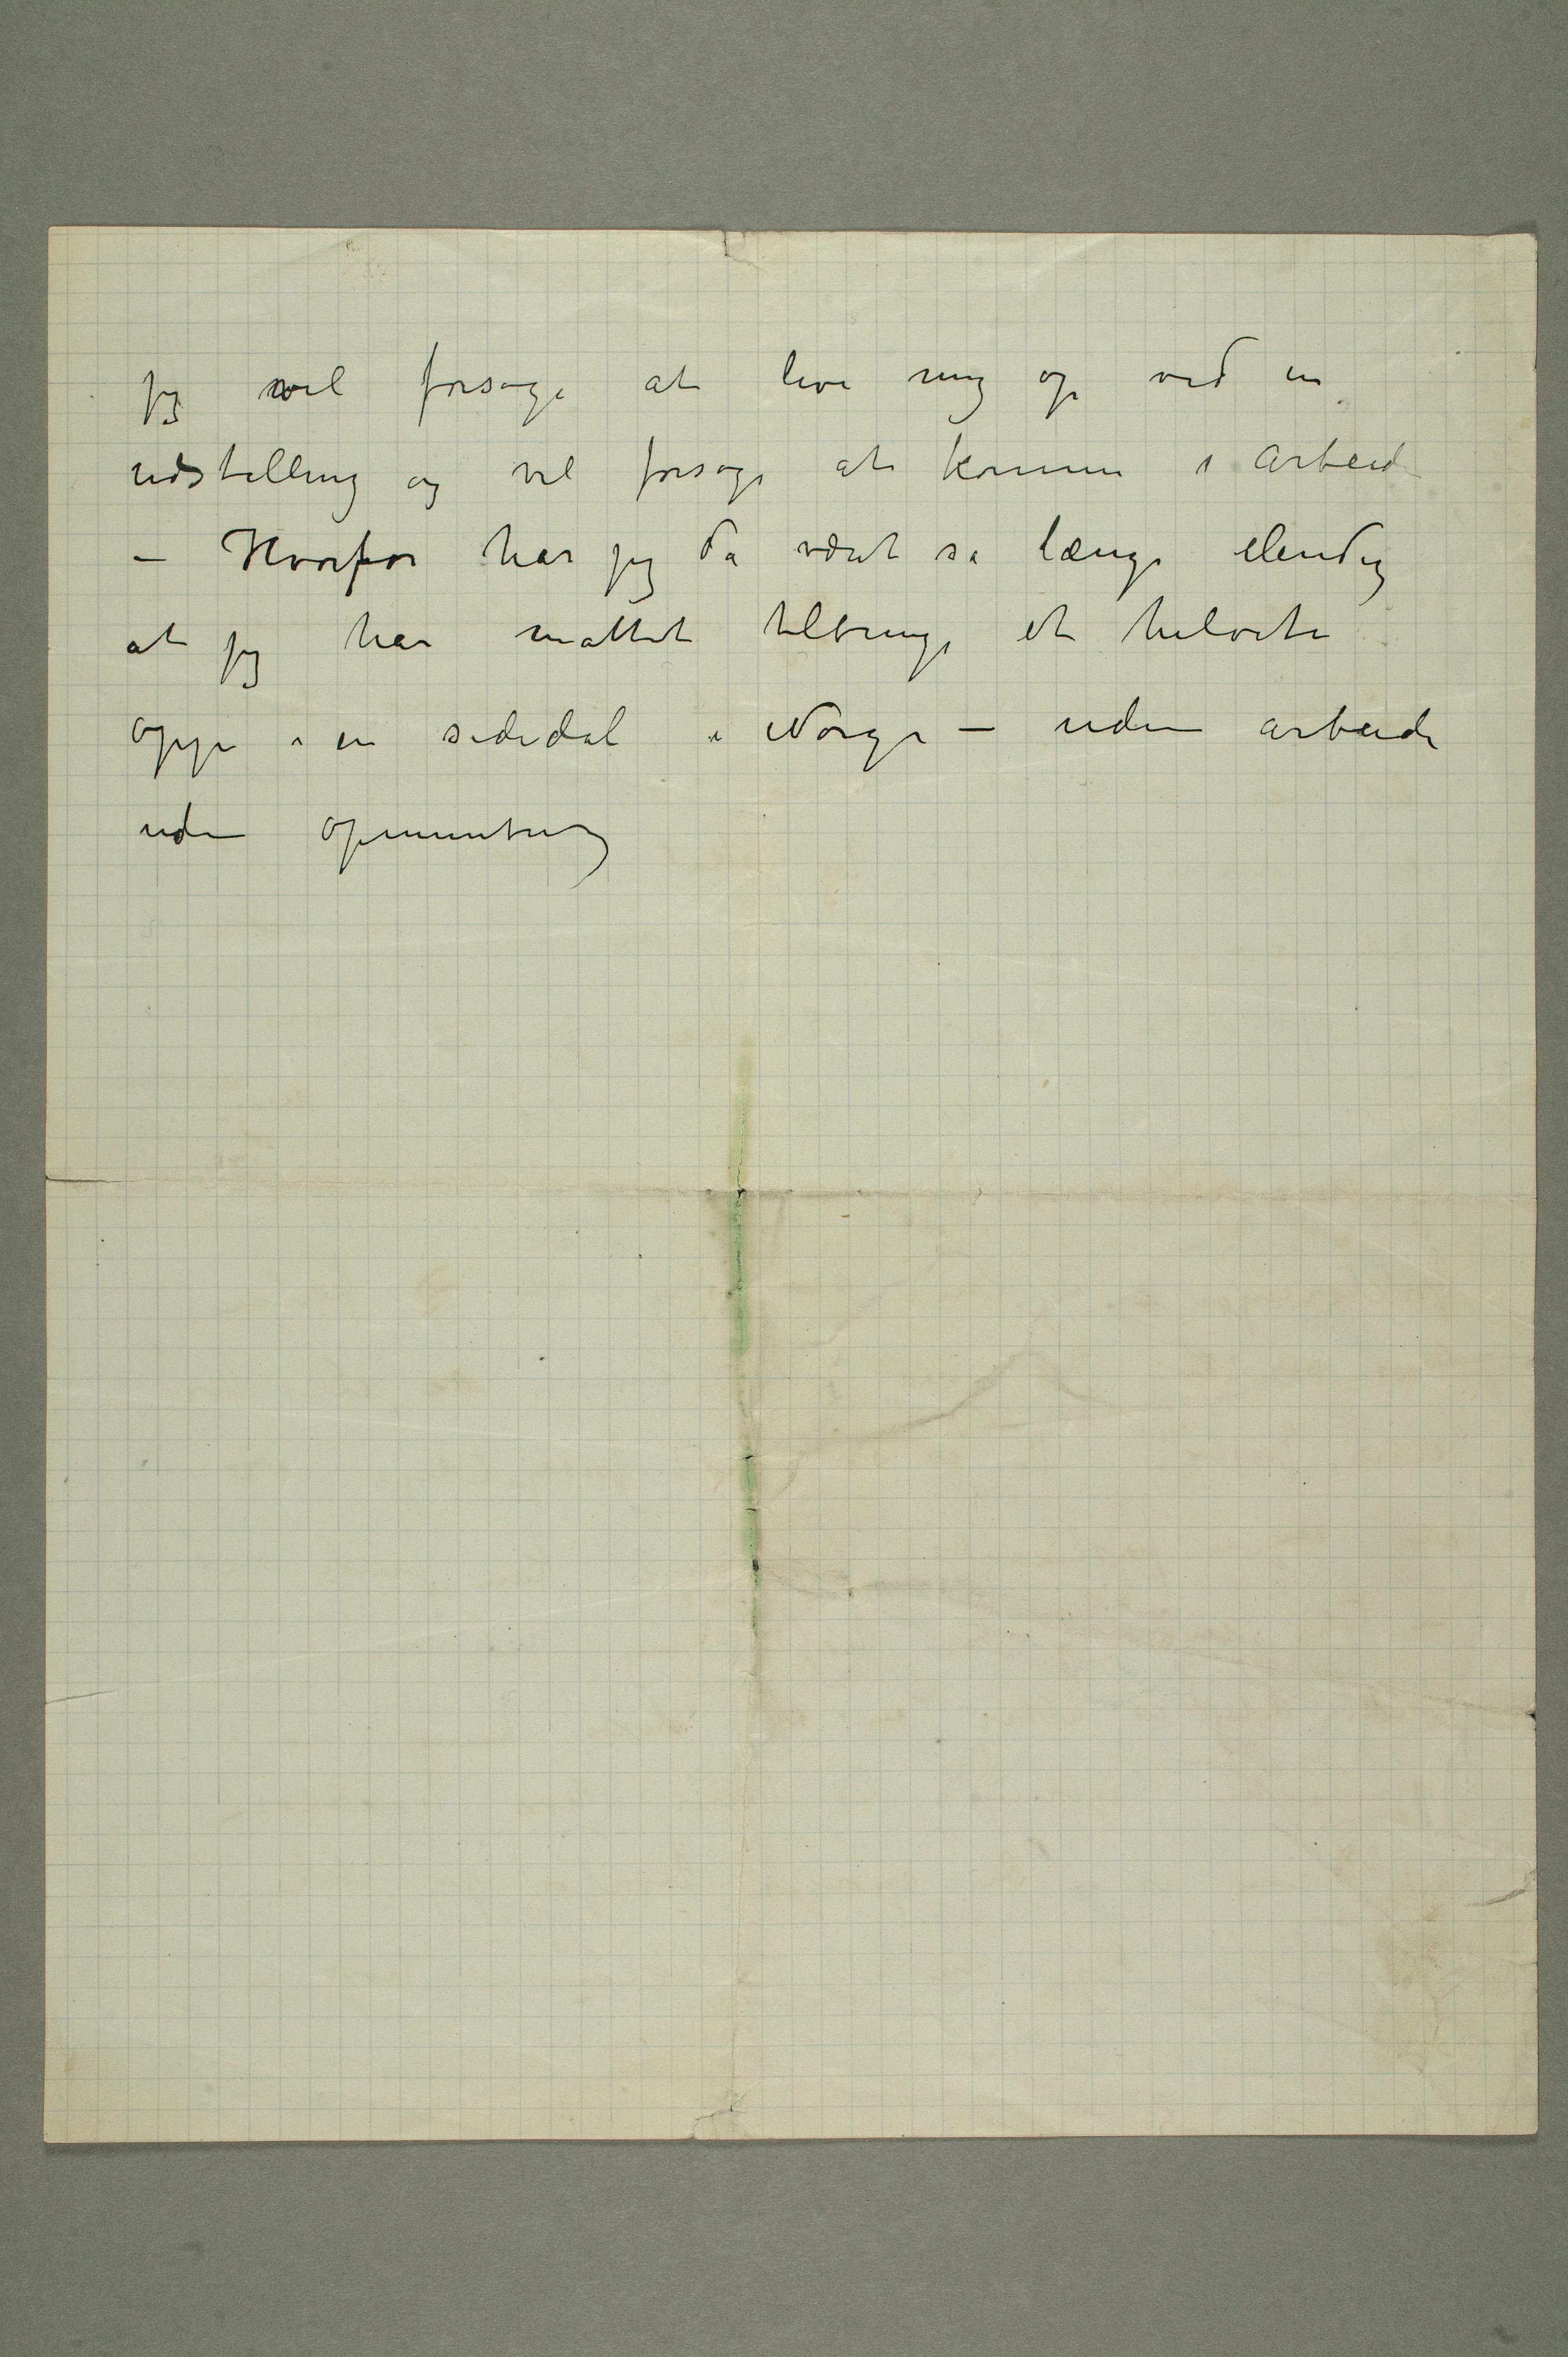 jeg vil forsøge at live mig op ved en
udstilling og vil forsøge at komme i arbeid
– Hvorfor har jeg da været så længe elendig
at jeg har måttet tilbringe et helvete
oppe i en sidedal i Norge – uden arbeide
uden opmuntring